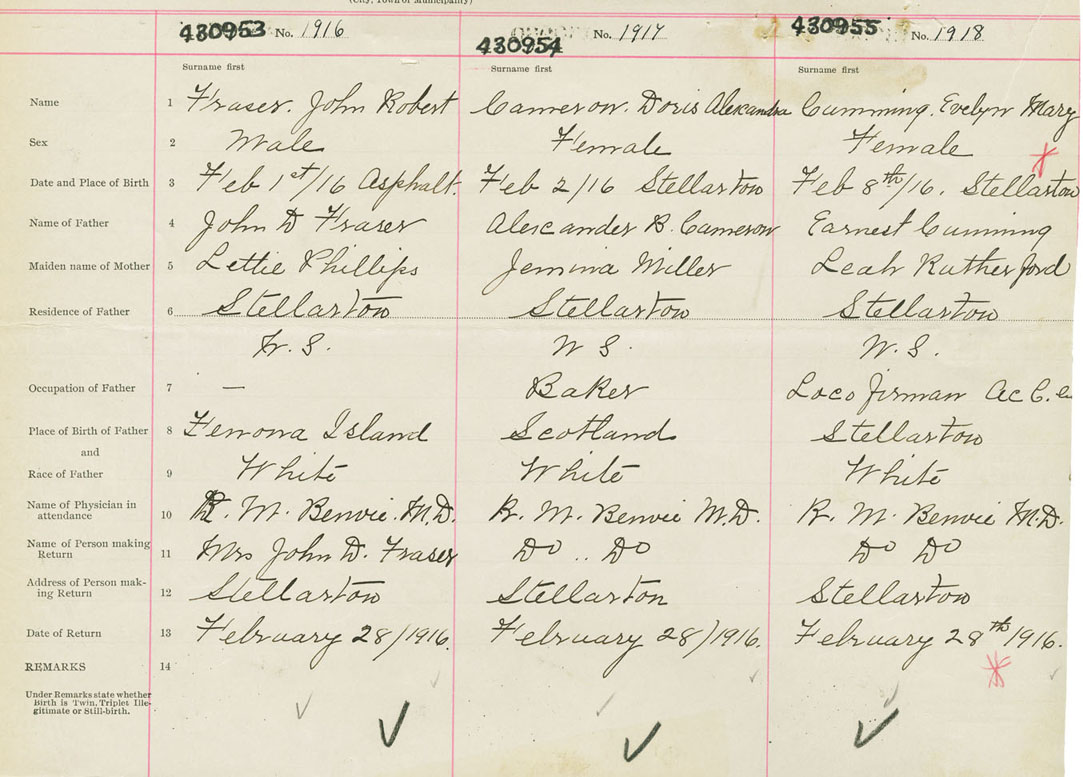 (City, Town or Municipality)
430953 No. 1916 430954 No. 1917 430955 No. 1918
Surname first Surname first Surname first
Name 1 Fraser. John Robert Cameron. Doris Alexandra Cumming. Evelyn Mary
Sex 2 Male Female Female
Date and Place of Birth 3 Feb 1st/16 Asphalt. Feb 2/16 Stellarton Feb 8th/16. Stellarton
Name of Father 4 John D Fraser Alexander B. Cameron Earnest Cumming
Maiden name of Mother 5 Lettie Phillips Jemima Miller Leah Rutherford
Residence of Father 6 Stellarton Stellarton Stellarton
N. S. N S. N. S.
Occupation of Father 7 — Baker Loco firman Ac C.
Place of Birth of Father 8 Island Scotland Stellarton
and
Race of Father 9 White White White
Name of Physician in
attendance 10 R. M. Benvie. M.D. R. M. Benvie M.D. R. M. Benvie M.D.
Name of Person making
Return 11 Mrs John D. Fraser Do .. Do Do Do
Address of Person mak-
ing Return 12 Stellarton Stellarton Stellarton
Date of Return 13 February 28/1916. February 28/1916. February 28th/1916.
REMARKS 14
Under Remarks state whether
Birth is Twin, Triplet Ille-
gitimate or Still-birth.